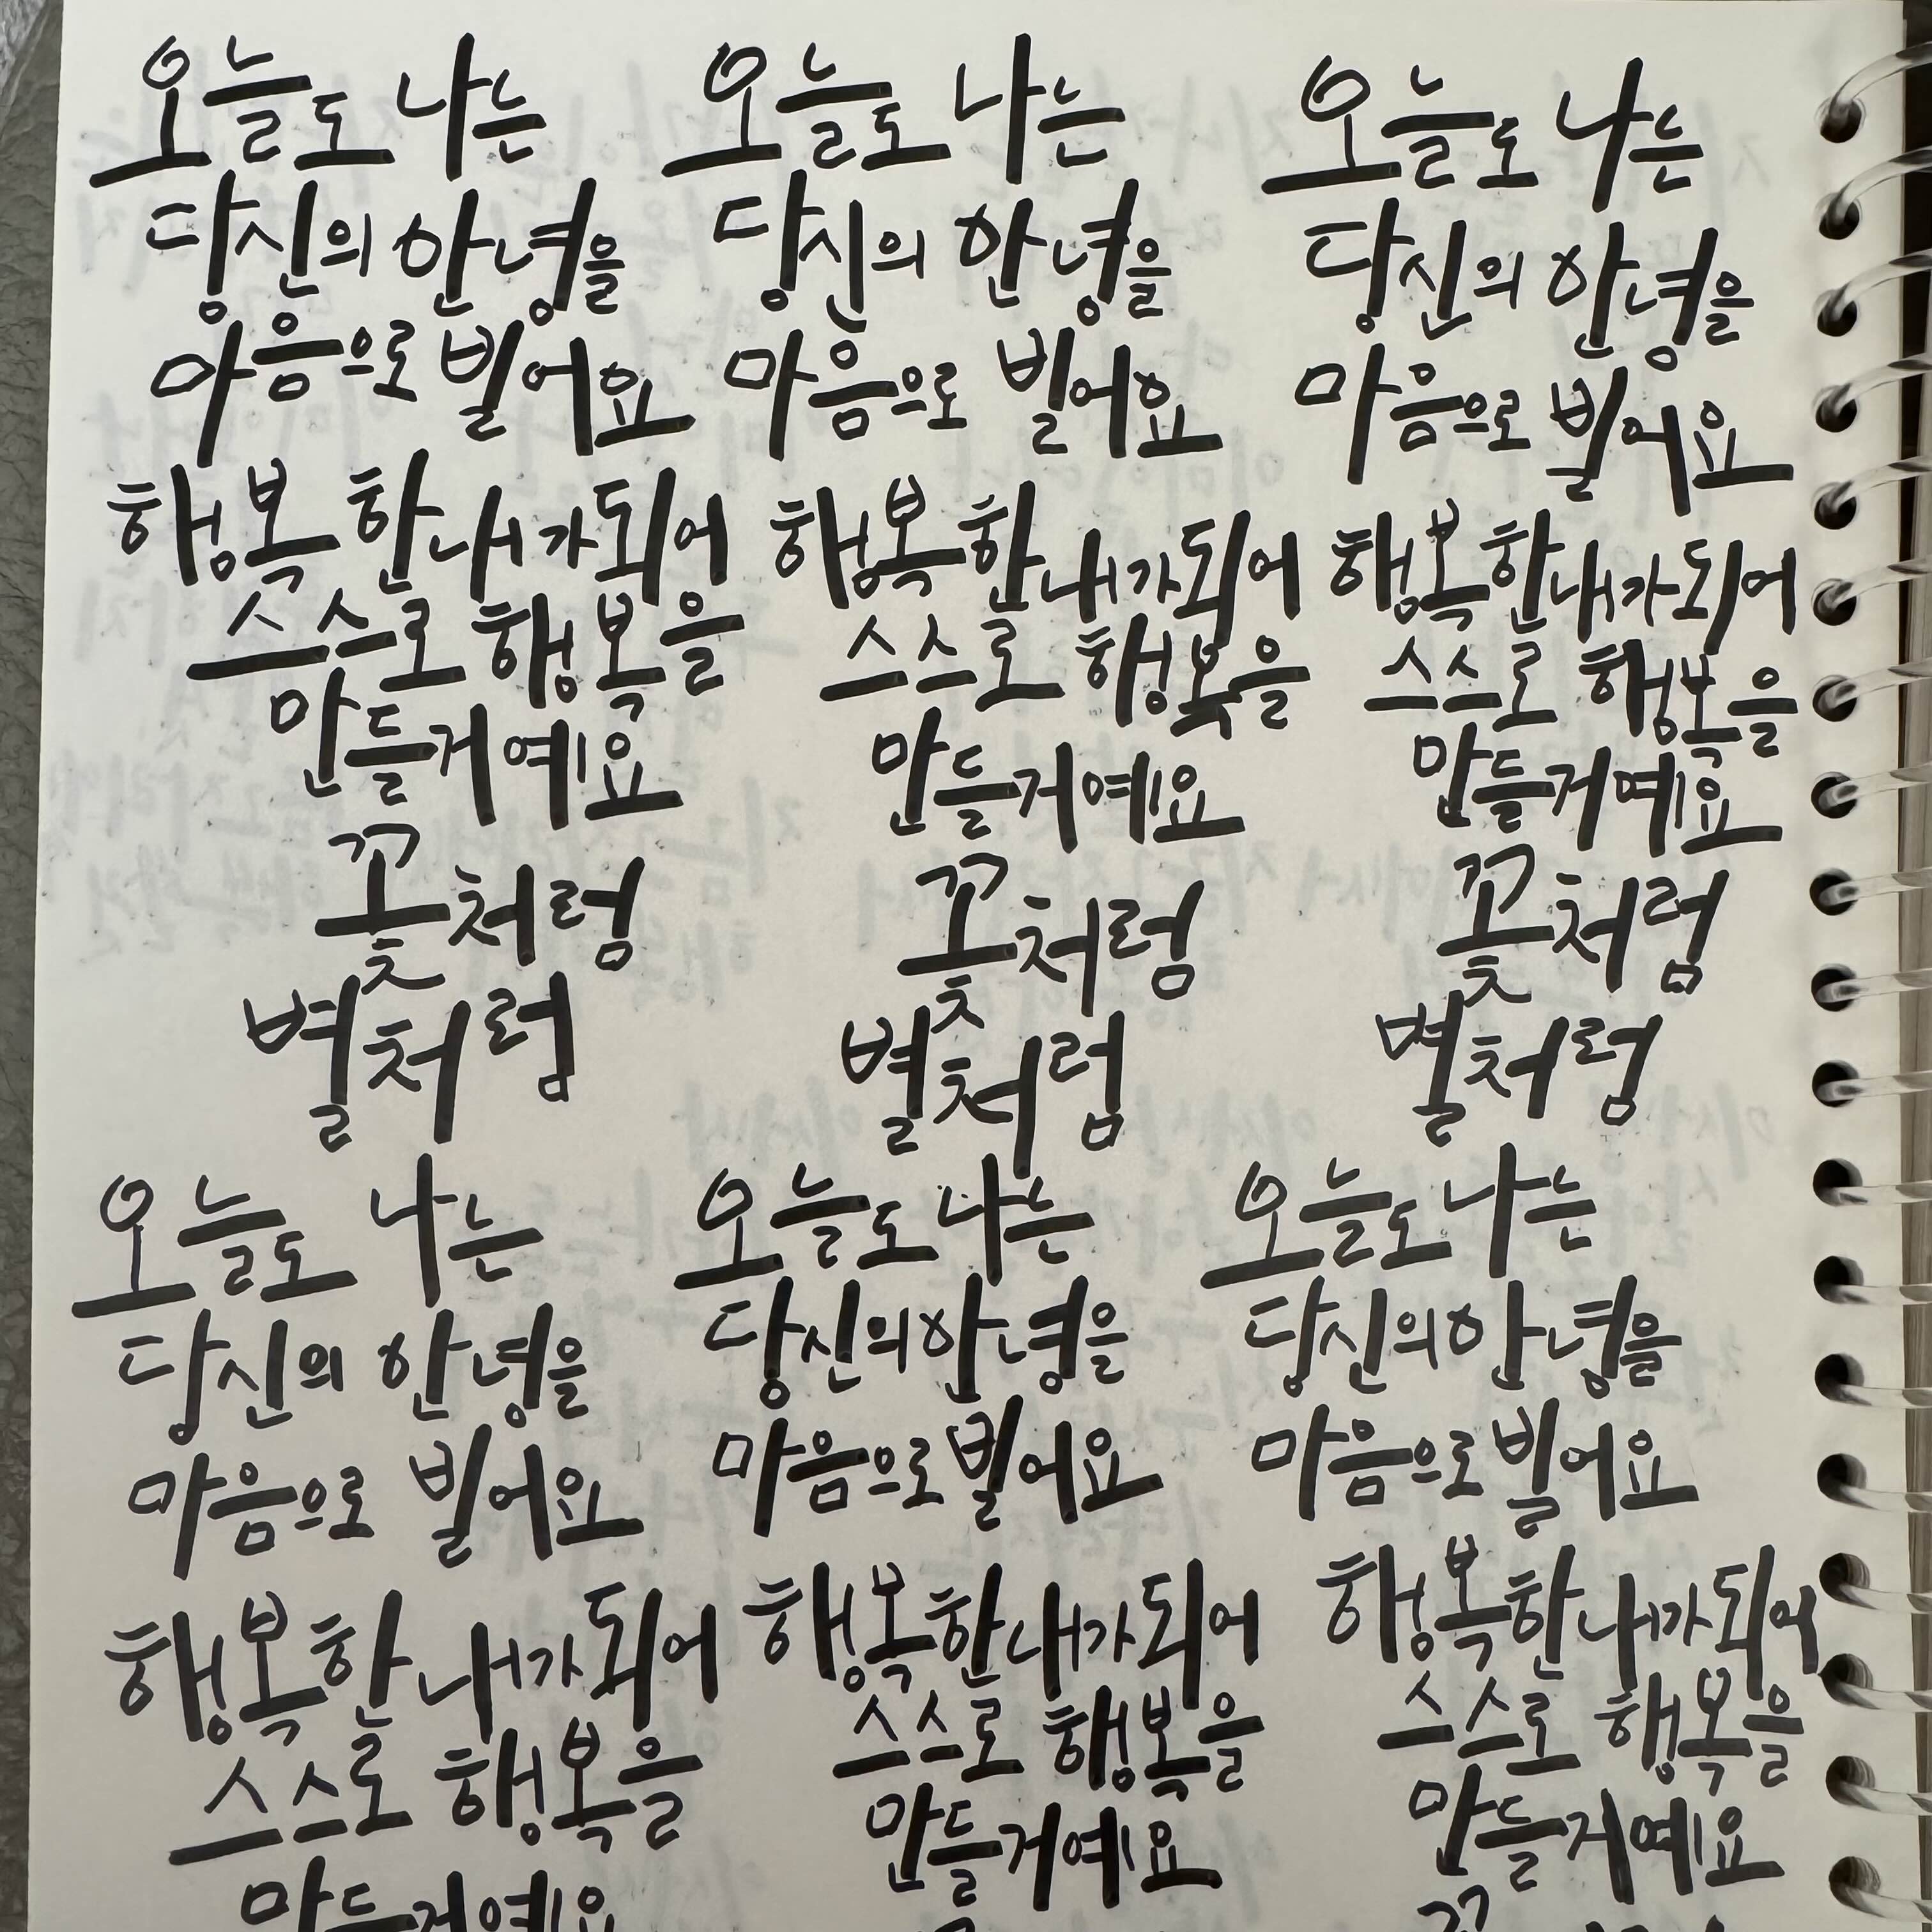 오늘도 나는
당신의 안녕을
마음으로 빌어요
행복한 내가 되어
스스로 행복을
만들거예요
꽃처럼
별처럼
오늘도 나는
당신의 안녕을
마음으로 빌어요
행복한 내가 되어
스스로 행복을
만들거예요
꽃처럼
별처럼
오늘도 나는
당신의 안녕을
마음으로 빌어요
행복한 내가 되어
스스로 행복을
만들거예요
꽃처럼
별처럼
오늘도 나는
당신의 안녕을
마음으로 빌어요
행복한 내가 되어
스스로 행복을
만들거예요
오늘도 나는
당신의 안녕을
마음으로 빌어요
행복한 내가 되어
스스로 행복을
만들거예요
오늘도 나는
당신의 안녕을
마음으로 빌어요
행복한 내가 되어
스스로 행복을
만들거예요